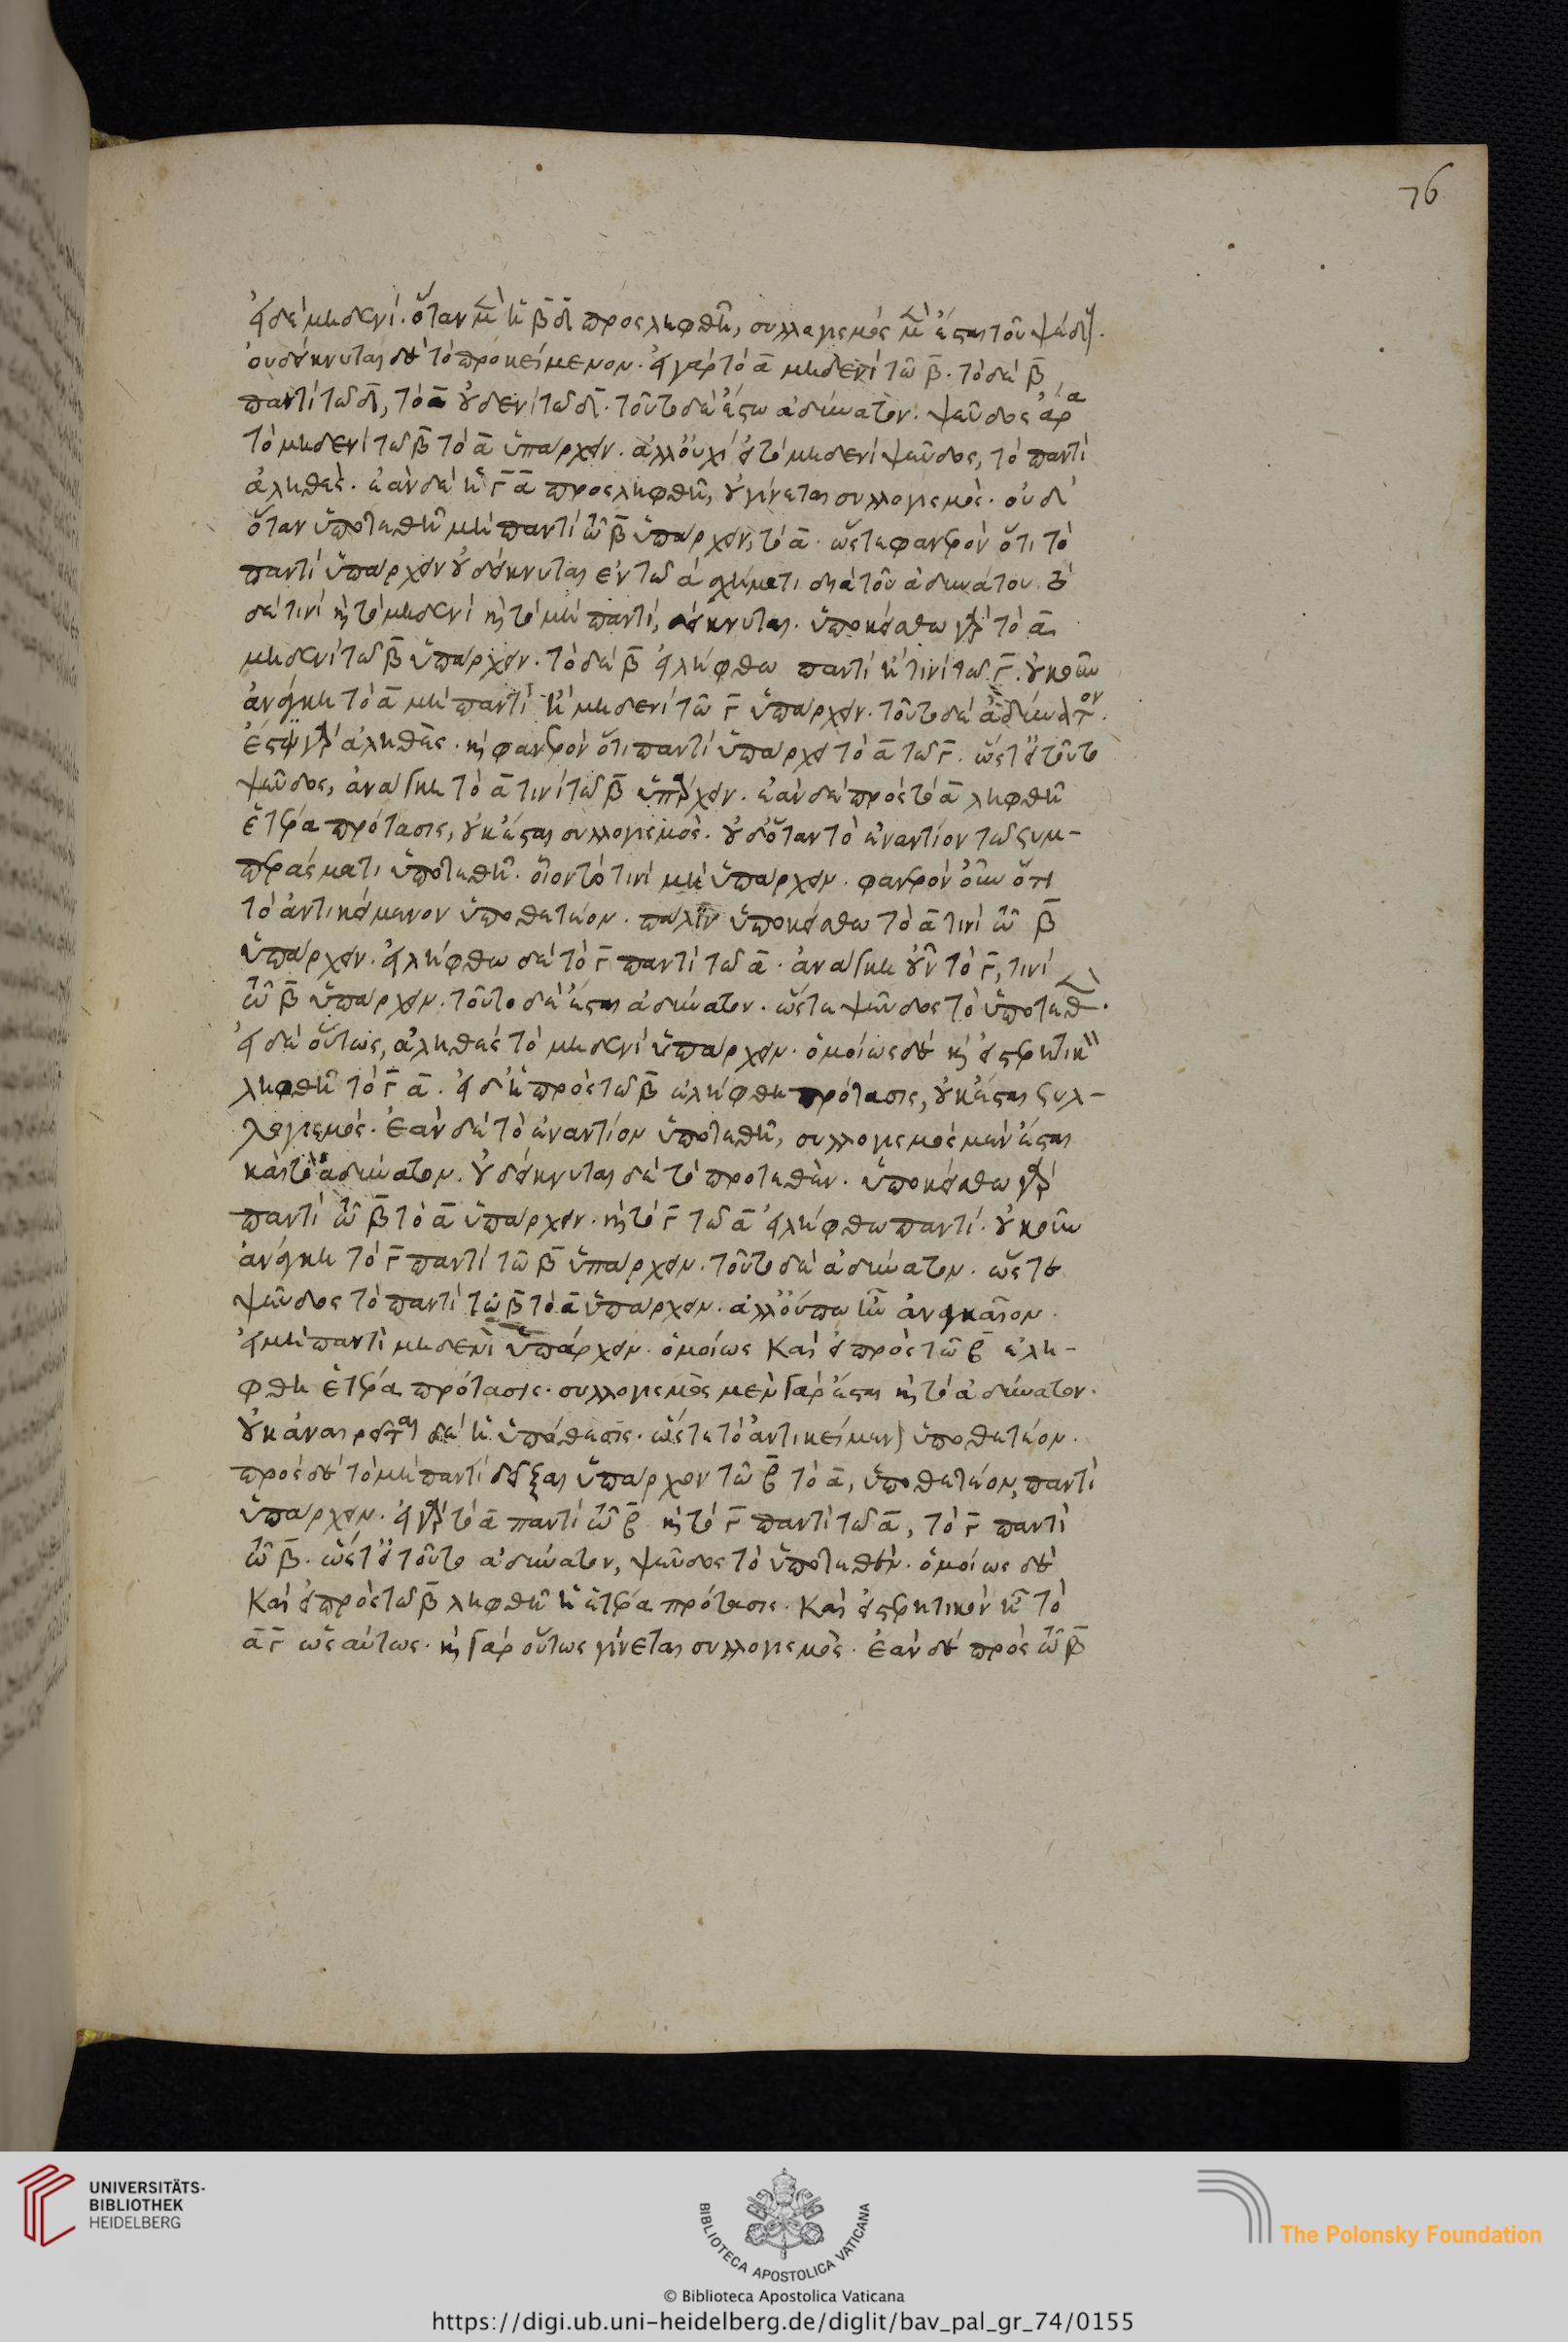 εἰ δὲ μηδενί. ὅταν μὲν ἡ β̄δ̄ προσληφθῇ, συλλογισμὸς μὲν ἔσται τοῦ ψεύδους.
οὐ δείκνυται δὲ τὸ προκείμενον. εἰ γὰρ τὸ ᾱ μηδενὶ τῶ β̄. τὸ δὲ β̄
παντὶ τῶ δ̄, τὸ ᾱ οὐδενὶ τῶ δ̄. τοῦτο δὲ ἔστω ἀδύνατον. ψεῦδος ἄρα
τὸ μηδενὶ τῶ β̄ τὸ ᾱ ὑπάρχειν. ἀλλ' οὐχὶ εἰ τὸ μηδενὶ ψεῦδος, τὸ παντὶ
ἀληθές. ἐὰν δὲ ἡ γ̄ᾱ προσληφθῇ, οὐ γίνεται συλλογισμός. οὐδ'
ὅταν ὑποτεθῇ μὴ παντὶ τῶ β̄ ὑπάρχειν, τὸ ᾱ. ὥστε φανερὸν ὅτι τὸ
παντὶ ὑπάρχειν οὐ δείκνυται ἐν τῶ ά σχήματι διὰ τοῦ ἀδυνάτου. τὸ
δέ τινὶ καὶ τὸ μηδενὶ καὶ τὸ μὴ παντί, δείκνυται. ὑποκείσθω γὰρ τὸ ᾱ
μηδενὶ τῶ β̄ ὑπάρχειν. τὸ δὲ β̄ εἰλήφθω παντὶ ἢ τινὶ τῶ γ̄. οὐκοῦν
ἀνάγκη τὸ ᾱ μὴ παντὶ ἢ μηδενὶ τῶ γ̄ ὑπάρχειν. τοῦτο δὲ ἀδύνατον.
ἔστω γὰρ ἀληθὲς. καὶ φανερὸν ὅτι παντὶ ὑπάρχει τὸ ᾱ τῶ γ̄. ὥστ' εἰ τοῦτο
ψεῦδος, ἀνάγκη τὸ ᾱ τινὶ τῶ β̄ ὑπάρχειν. ἐὰν δὲ πρὸς τὸ ᾱ ληφθῇ
ἑτέρα πρότασις, οὐκ ἔσται συλλογισμός. οὐδ' ὅταν τὸ ἐναντίον τῶ συμ-
περάσματι ὑποτεθῇ. οἷον τὸ τινὶ μὴ ὑπάρχειν. φανερὸν οὖν ὅτι
τὸ ἀντικείμενον ὑποθετέον. πάλιν ὑποκείσθω τὸ ᾱ τινὶ τῶ β̄
ὑπάρχειν. εἰλήφθω δὲ τὸ γ̄ παντὶ τῶ ᾱ. ἀνάγκη οὖν τὸ γ̄, τινὶ
τῶ β̄ ὑπάρχειν. τοῦτο δὲ ἔσται ἀδύνατον. ὥστε ψεῦδος τὸ ὑποτεθέν.
εἰ δὲ οὕτως, ἀληθὲς τὸ μηδενὶ ὑπάρχειν. ὁμοίως δὲ καὶ εἰ στερητικὴ
ληφθῇ τὸ γ̄ᾱ. εἰ δ' ἡ πρὸς τῶ β̄ εἰλήφθη πρότασις, οὐκ ἔσται συλ-
λογισμός. ἐὰν δὲ τὸ ἐναντίον ὑποτεθῇ, συλλογισμὸς μὲν ἔσται
καὶ τὸ ἀδύνατον. οὐ δείκνυται δὲ τὸ προτεθέν. ὑποκείσθω γὰρ
παντὶ τῶ β̄ τὸ ᾱ ὑπάρχειν. καὶ τὸ γ̄ τῶ ᾱ εἰλήφθω παντί. οὐκοῦν
ἀνάγκη τὸ γ̄ παντὶ τῶ β̄ ὑπάρχειν. τοῦτο δὲ ἀδύνατον. ὥστε
ψεῦδος τὸ παντὶ τῶ β̄ τὸ ᾱ ὑπάρχειν. ἀλλ' οὔπω ἀναγκαῖον.
εἰ μὴ παντὶ μηδενὶ ὑπάρχειν. ὁμοίως καὶ εἰ πρὸς τῶ β̄ ἐλή-
φθη ἑτέρα πρότασις. συλλογισμὸς μὲν γὰρ ἔσται καὶ τὸ ἀδύνατον.
οὐκ ἀναιρεῖται δὲ ἡ ὑπόθεσις. ὥστε τὸ ἀντικείμενον ὑποθετέον.
πρὸς δὲ τὸ μὴ παντὶ δεῖξαι ὑπάρχον τῶ β̄ τὸ ᾱ, ὑποθετέον, παντὶ
ὑπάρχειν. εἰ γὰρ τὸ ᾱ παντὶ τῶ β̄ καὶ τὸ γ̄ παντὶ τῶ ᾱ, τὸ γ̄ παντὶ
τῶ β̄. ὥστ' εἰ τοῦτο ἀδύνατον, ψεῦδος τὸ ὑποτεθέν. ὁμοίως δὲ
καὶ εἰ πρὸς τῶ β̄ ληφθῇ ἡ ἑτέρα πρότασις. καὶ εἰ στερητικὸν ἦν τὸ
ᾱγ̄ ὡσαύτως. καὶ γὰρ οὕτως γίνεται συλλογισμός. ἐὰν δὲ πρὸς τῶ β̄
76
UNIVERSITÄTS-
BIBLIOTHEK
HEIDELBERG
BIBLIOTECA APOSTOLICA VATICANA
The Polonsky Foundation
© Biblioteca Apostolica Vaticana
https://digi.ub.uni-heidelberg.de/diglit/bav_pal_gr_74/0155